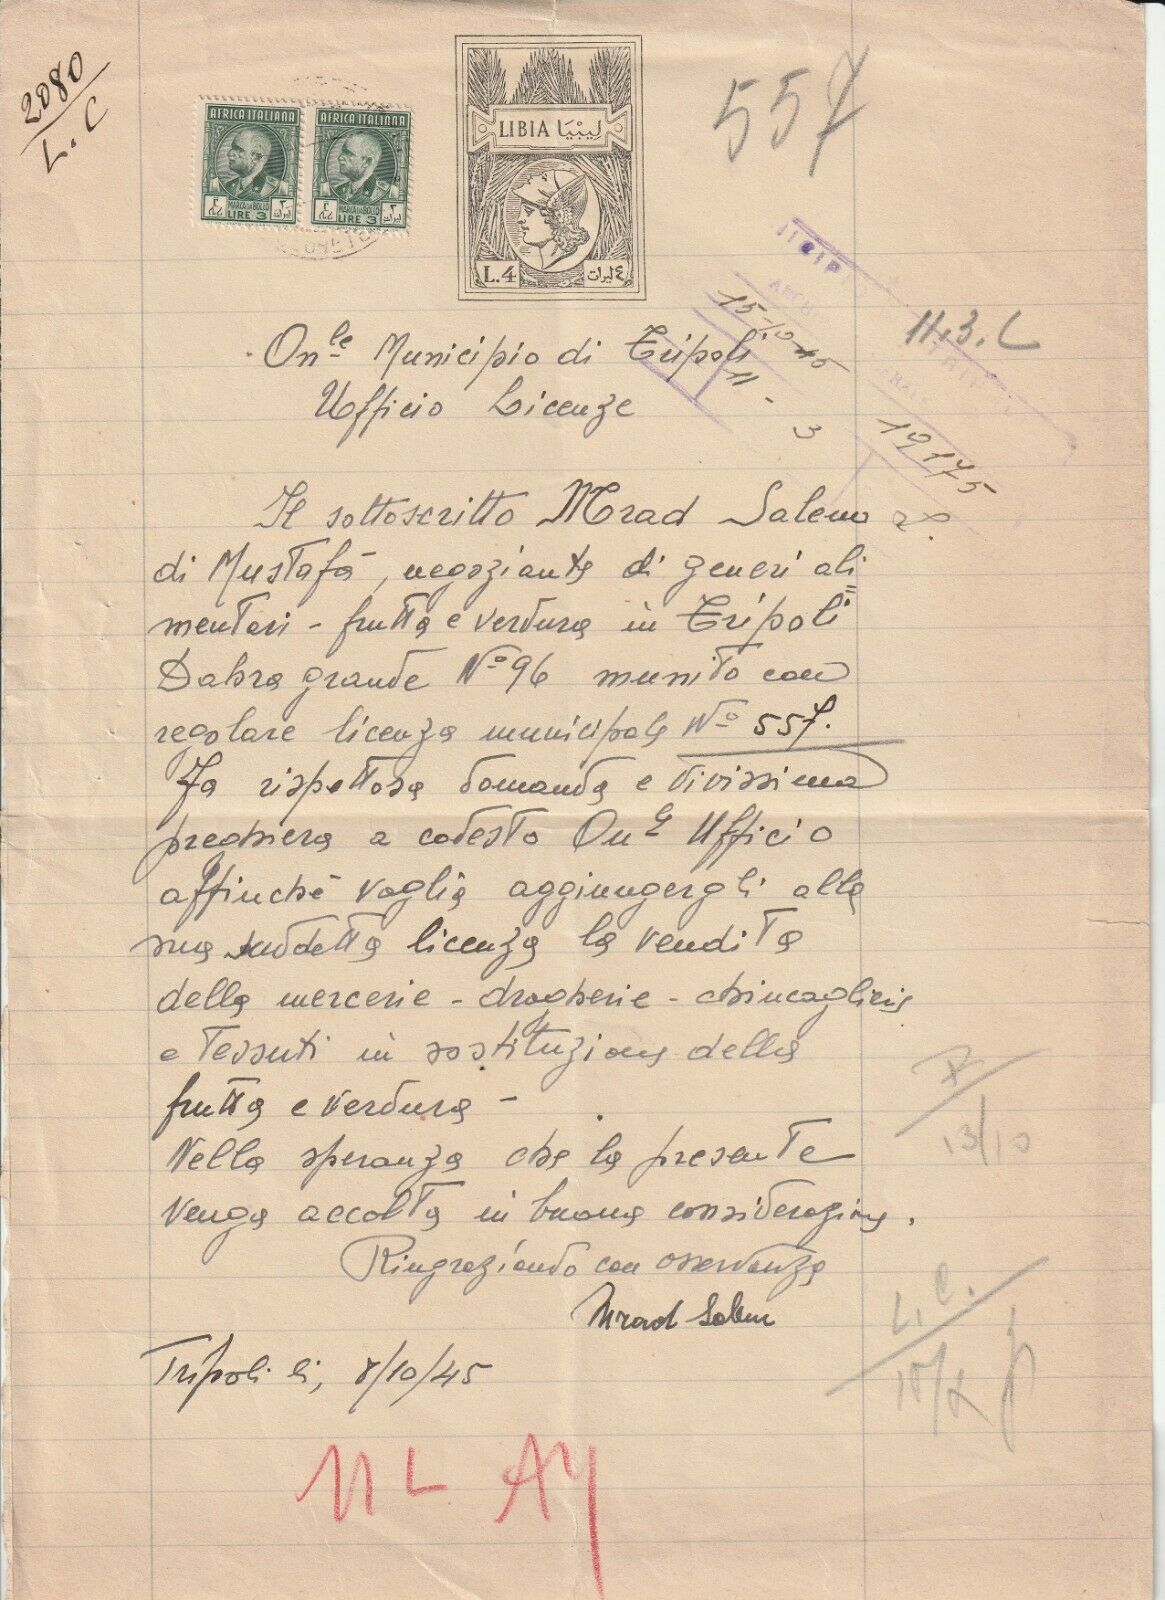 2080
L. C
AFRICA ITALIANA
AFRICA ITALIANA
MARCA DA BOLLO
LIRE 3
MARCA DA BOLLO
LIRE 3
LIBIA ليبيا
L.4 ٤ ليرات
557
11.3.C
15-10-45
11 - 3
19175
On.le Municipio di Tripoli
Ufficio Licenze
Il sottoscritto Mrad Salem
di Mustafà, negoziante di generi ali
mentari - frutta e verdura in Tripoli
Dahra grande N° 96 munito con
regolare licenza municipale N° 557.
Fa rispettosa domanda e vivissima
preghiera a codesto On.le Ufficio
affinché voglia aggiungergli alla
sua suddetta licenza la vendita
della mercerie - drogherie - chincaglierie
e Tessuti in sostituzione della
frutta e verdura -
Nella speranza che la presente
venga accolta in buona considerazione.
Ringraziando con osservanza
Mrad Salem
Tripoli li, 8/10/45
13/10
L. C.